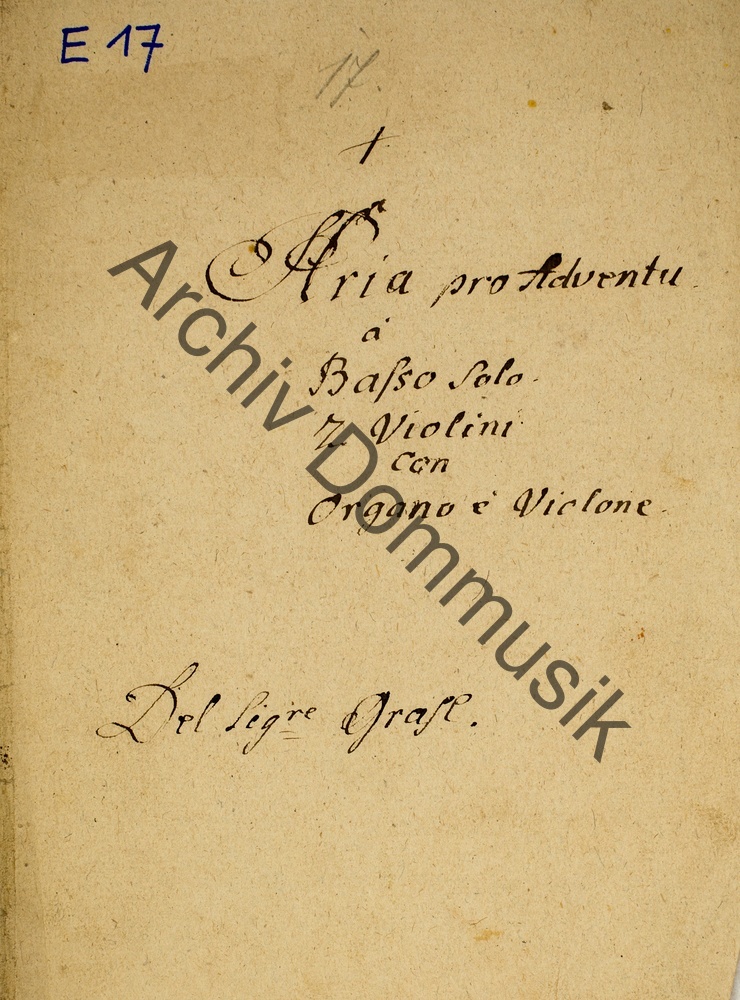 E 17
17.
+
Aria pro Adventu.
à
Baſso Solo.
2 Violini
con
Organo è Violone.
Del Sigre Graſl.
Archiv Dommusik